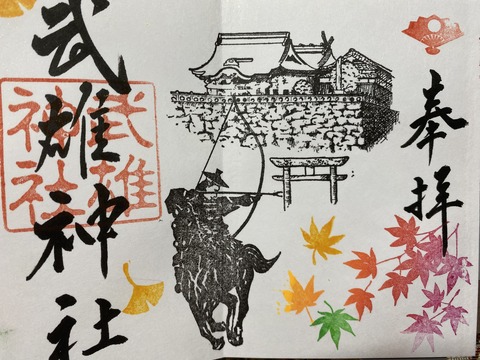 奉拝
武雄神社
武雄
神社